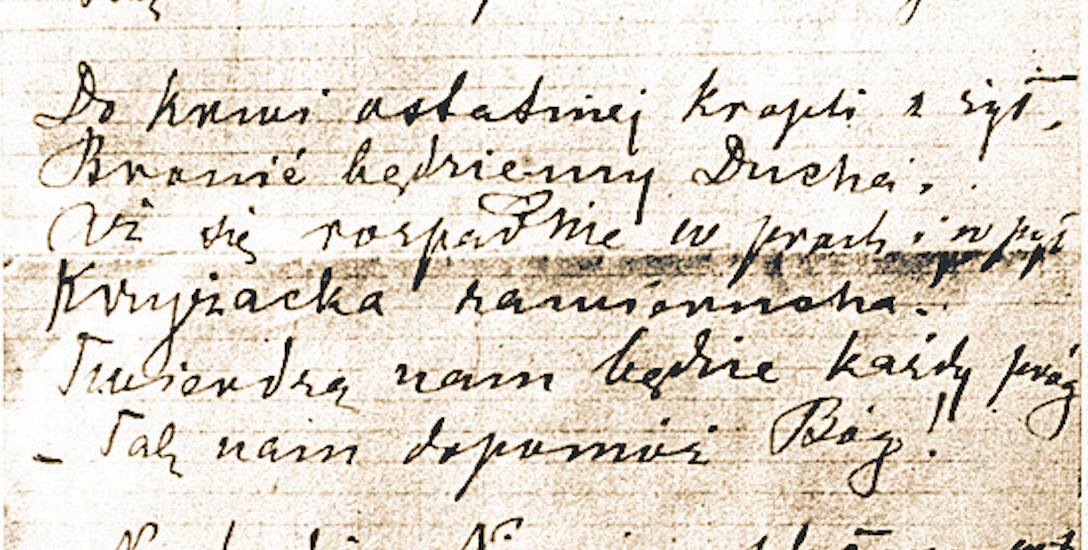 Do krwi ostatniej kropli z żył,
Bronić będziemy Ducha,
Aż się rozpadnie w proch i w pył
Krzyżacka zawierucha.
Twierdzą nam będzie każdy próg
– Tak nam dopomóż Bóg!